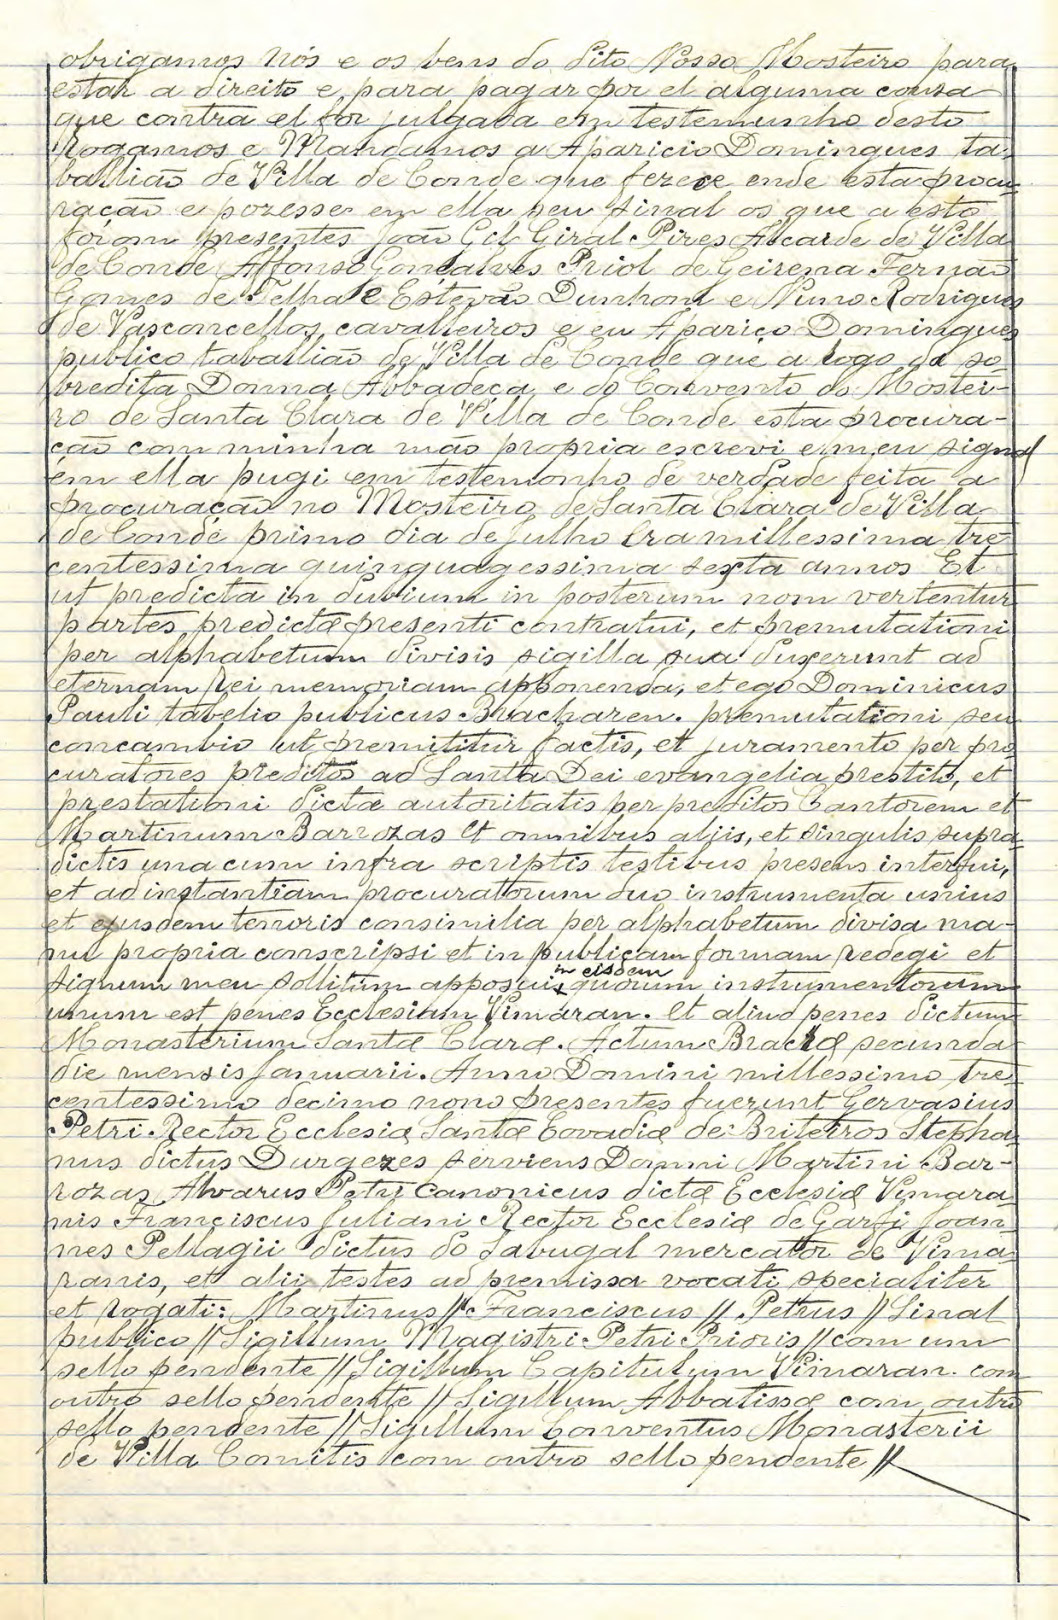 obrigamos Nós e os bens do dito Nosso Mosteiro para
estar a direito e para pagar por el alguma cousa
que contra el for julgada em testemunho desto
Rogamos e Mandamos a Aparicio Domingues ta-
ballião de Villa de Conde que fezece ende esta procu-
ração e pozesse em ella seu sinal os que a esto
foram presentes João Gil Giral Pires Alcarde de Villa
de Conde Affonso Gonçalves Priol de Geirena Fernão
Gomes de Telhale Estevão Dunhom e Nuno Rodrigues
de Vasconcellos, cavalleiros e eu Apariço Domingues
publico taballião de Villa de Conde que a rogo da so-
bredita Donna Abbadeça e do Convento do Mostei-
ro de Santa Clara de Villa de Conde esta procura-
ção com minha mão propria escrevi e meu signal
em ella pugi em testemonho de verdade feita a
procuração no Mosteiro de Santa Clara de Villa
de Conde primo dia de Julho Era millessima tre-
centessima quinquagessima sexta annos Et
ut predicta in dubium in posterum nom vertentur
partes predictæ presenti contratui, et premutationi
per alphabetum divisis sigilla sua duxerunt ad
eternam rei memoriam apponenda, et ego Dominicus
Pauli tabelio publicus Bracharen. premutationi seu
concambio ut premititur factis, et juramento per pro-
curatores preditos ad Santa Dei evangelia prestito, et
prestationi dictæ autoritatis per preditos Cantorem et
Martinum Barrozas et omnibus aljis, et singulis supra-
dictis una cum infra scriptis testibus presens interfui,
et ad instantiam procuratorum duo instrumenta unius
et ejusdem tenoris consimilia per alphabetum divisa ma-
nu propria conscripsi et in publicam formam redegi et
signum meu sollitum apposui in eisdem quorum instrumentorum
unum est penes Ecclesiam Vimaran. Et aliud penes dictum
Monasterium Santæ Claræ. Actum Bracæ secunda
die mensis Januarii. Anno Domini millessimo tre-
centessimo decimo nono presentes fuerunt Gervasius
Petri Rector Ecclesiæ Santæ Eovadiæ de Briteiros Stepha-
nus dictus Durgezes serviens Domni Martini Bar-
rozas Alvarus Petri canonicus dictæ Ecclesiæ Vimara-
nis Franciscus Juliani Rector Ecclesiæ de Garfi Joan-
nes Pellagii dictus do Sabugal mercator de Vima-
ranis, et alii testes ad premissa vocati specialiter
et rogati: Martinus // Franciscus // Petrus // Sinal
publico // Sigillum Magistri Petri Prioris // com um
sello pendente // Sigillum Capitulum Vimaran. com
outro sello pendente // Sigillum Abbatissæ com outro
sello pendente // Sigillum Conventus Monasterii
de Villa Comitis com outro sello pendente //